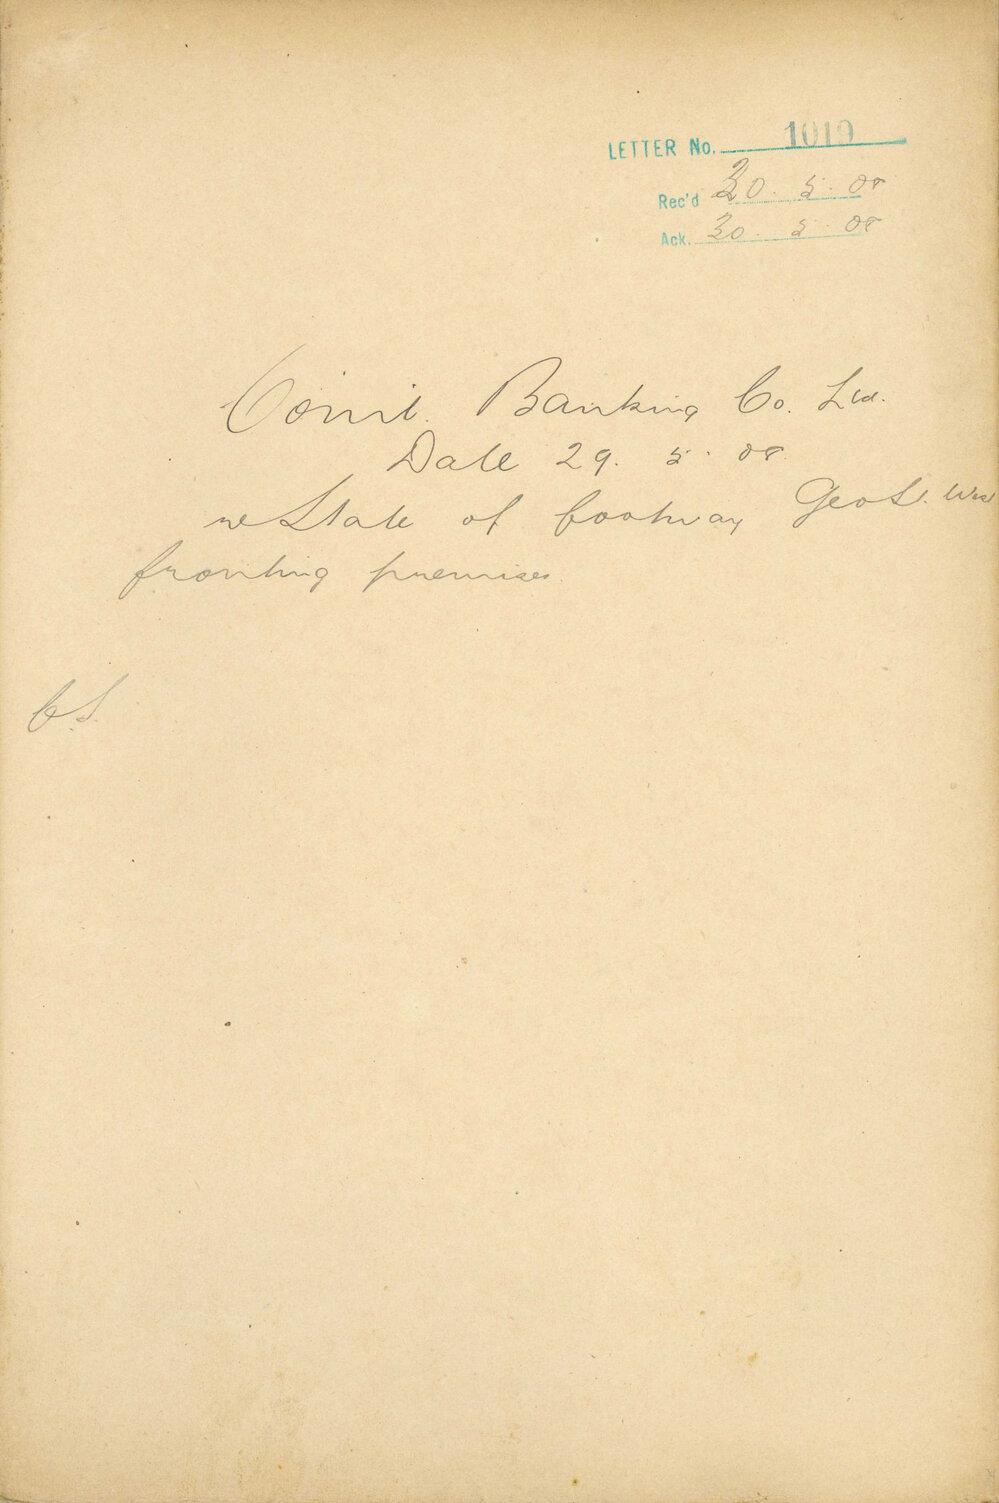 LETTER No. 1019
Rec'd 30. 5. 08
Ack. 30. 5. 08
Coml. Banking Co. Ltd.
Date 29. 5. 08
re State of footway Geo St. West
fronting premises.
C.S.